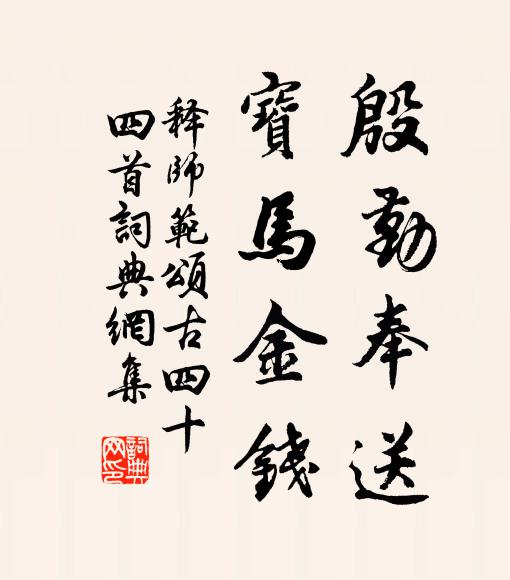 殷勤奉送
寶馬金錢
释師範頌古四十
四首詞典網集
詞典网印